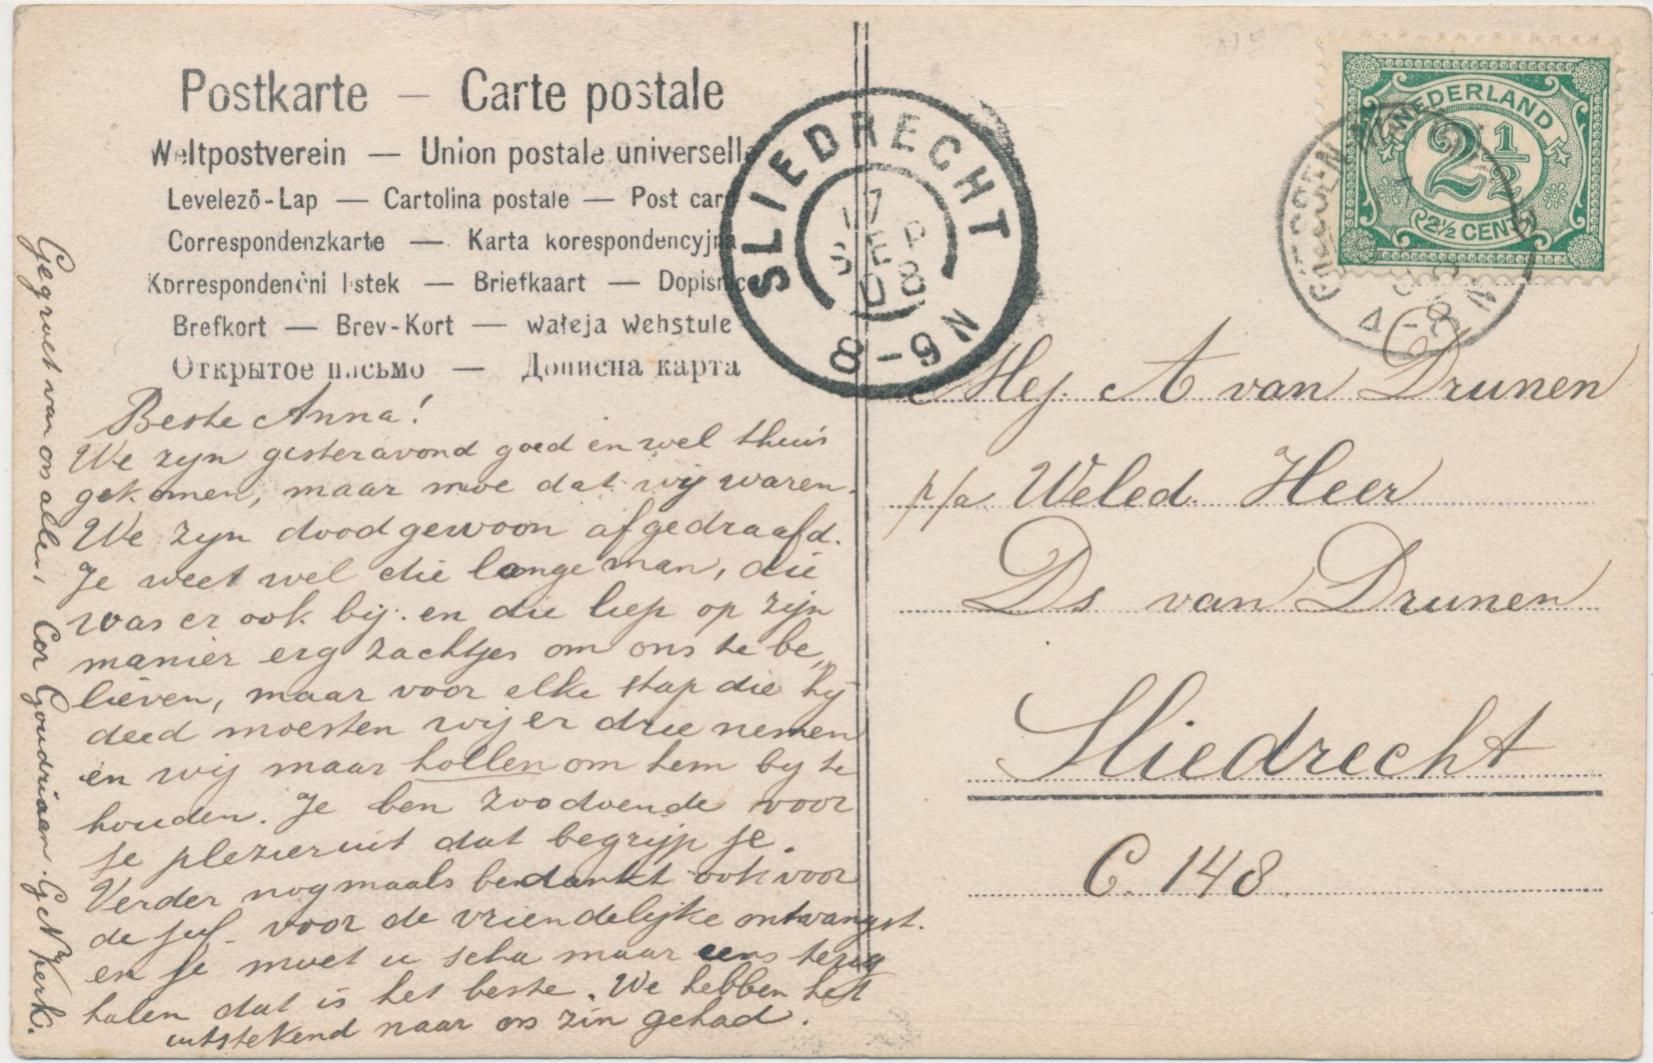 Postkarte — Carte postale
Weltpostverein — Union postale universelle
Levelezö-Lap — Cartolina postale — Post card
Correspondenzkarte — Karta korespondencyjna
Korrespondenčni listek — Briefkaart — Dopisnice
Brefkort — Brev-Kort — wałeja wehstule
Открытое письмо — Дописна карта
Beste Anna!
We zijn gisteravond goed en wel thuis
gekomen, maar moe dat wij waren.
We zijn doodgewoon afgedraafd.
Je weet wel die lange man, die
was er ook bij. en die liep op zijn
manier erg zachtjes om ons te be„
lieven, maar voor elke stap die hij
deed moesten wij er drie nemen
en wij maar hollen om hem bij te
houden. Je ben zoodoende voor
je plezier uit dat begrijp je.
Verder nogmaals bedankt ook voor
de juf. voor de vriendelijke ontvangst.
en je moet u maar eens terug
halen dat is het beste. We hebben het
uitstekend naar ons zin gehad.
Gegroet van ons allen, Cor Goudriaan. G. N. kerk.
SLIEDRECHT
17
SEP
08
8-9 N
NEDERLAND
2 1/2
2½ CENT
Mej. A van Drunen
p/a Weled. Heer
Ds van Drunen
Sliedrecht
C. 148